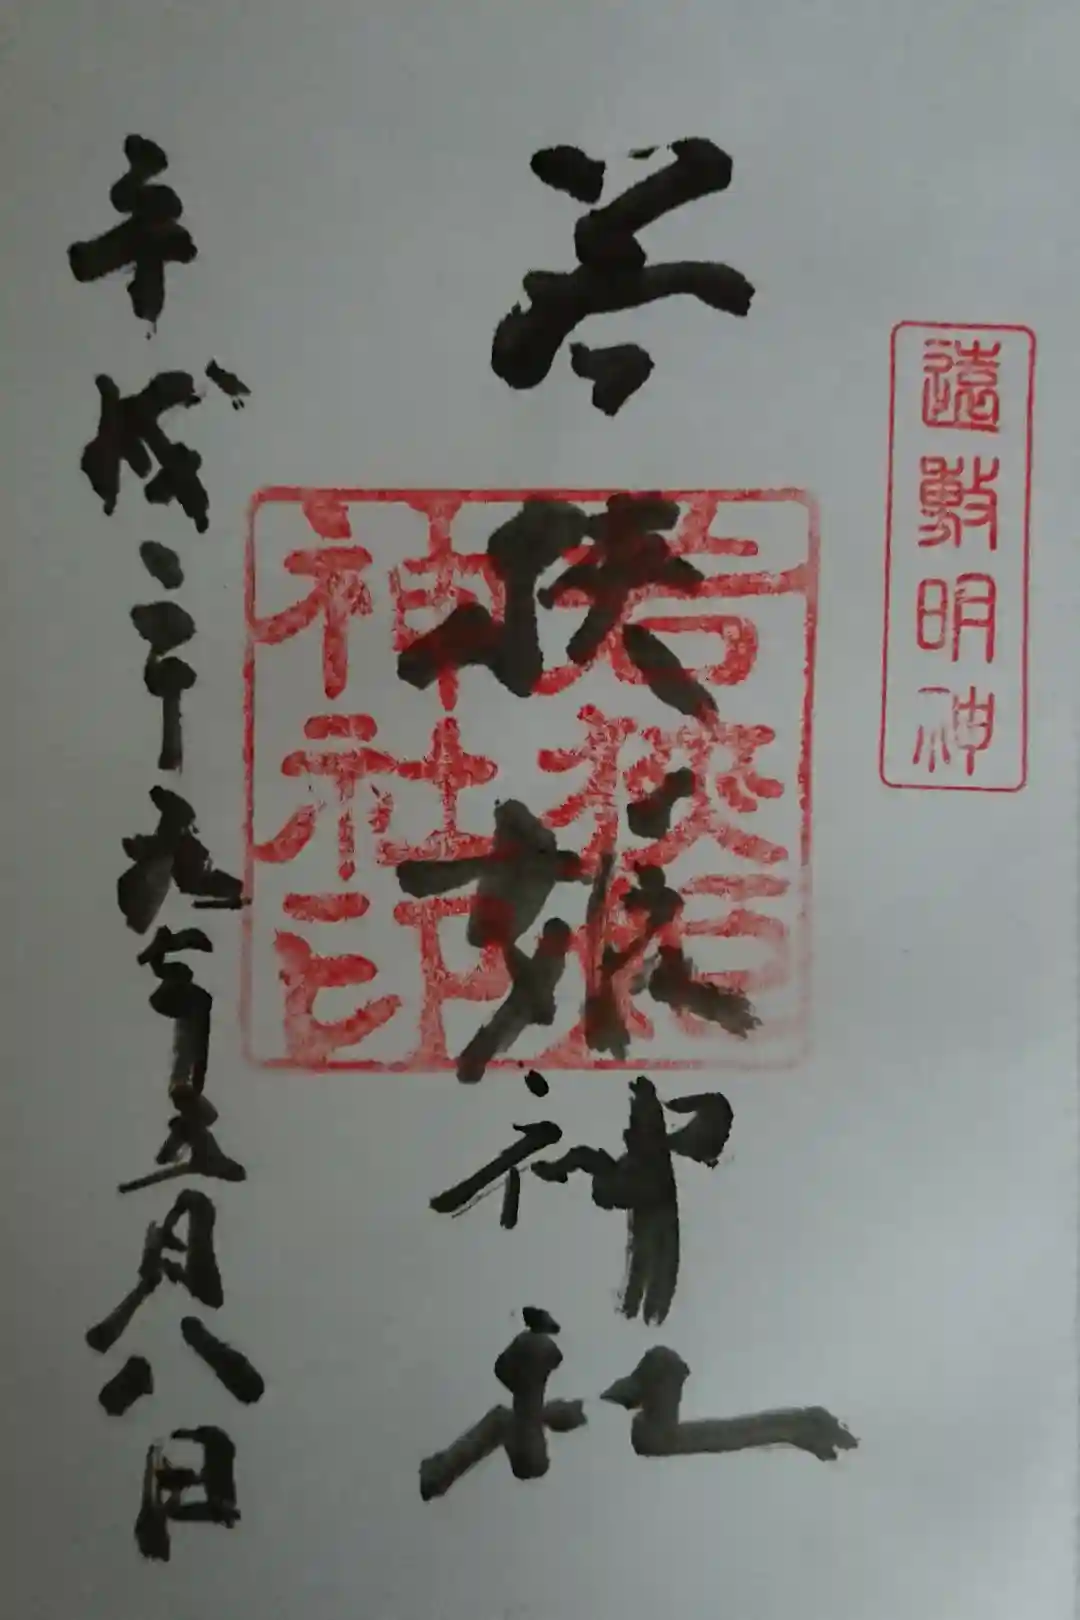 遠敷明神
若狭姫神社
若狭姫神社印
平成二十九年五月八日